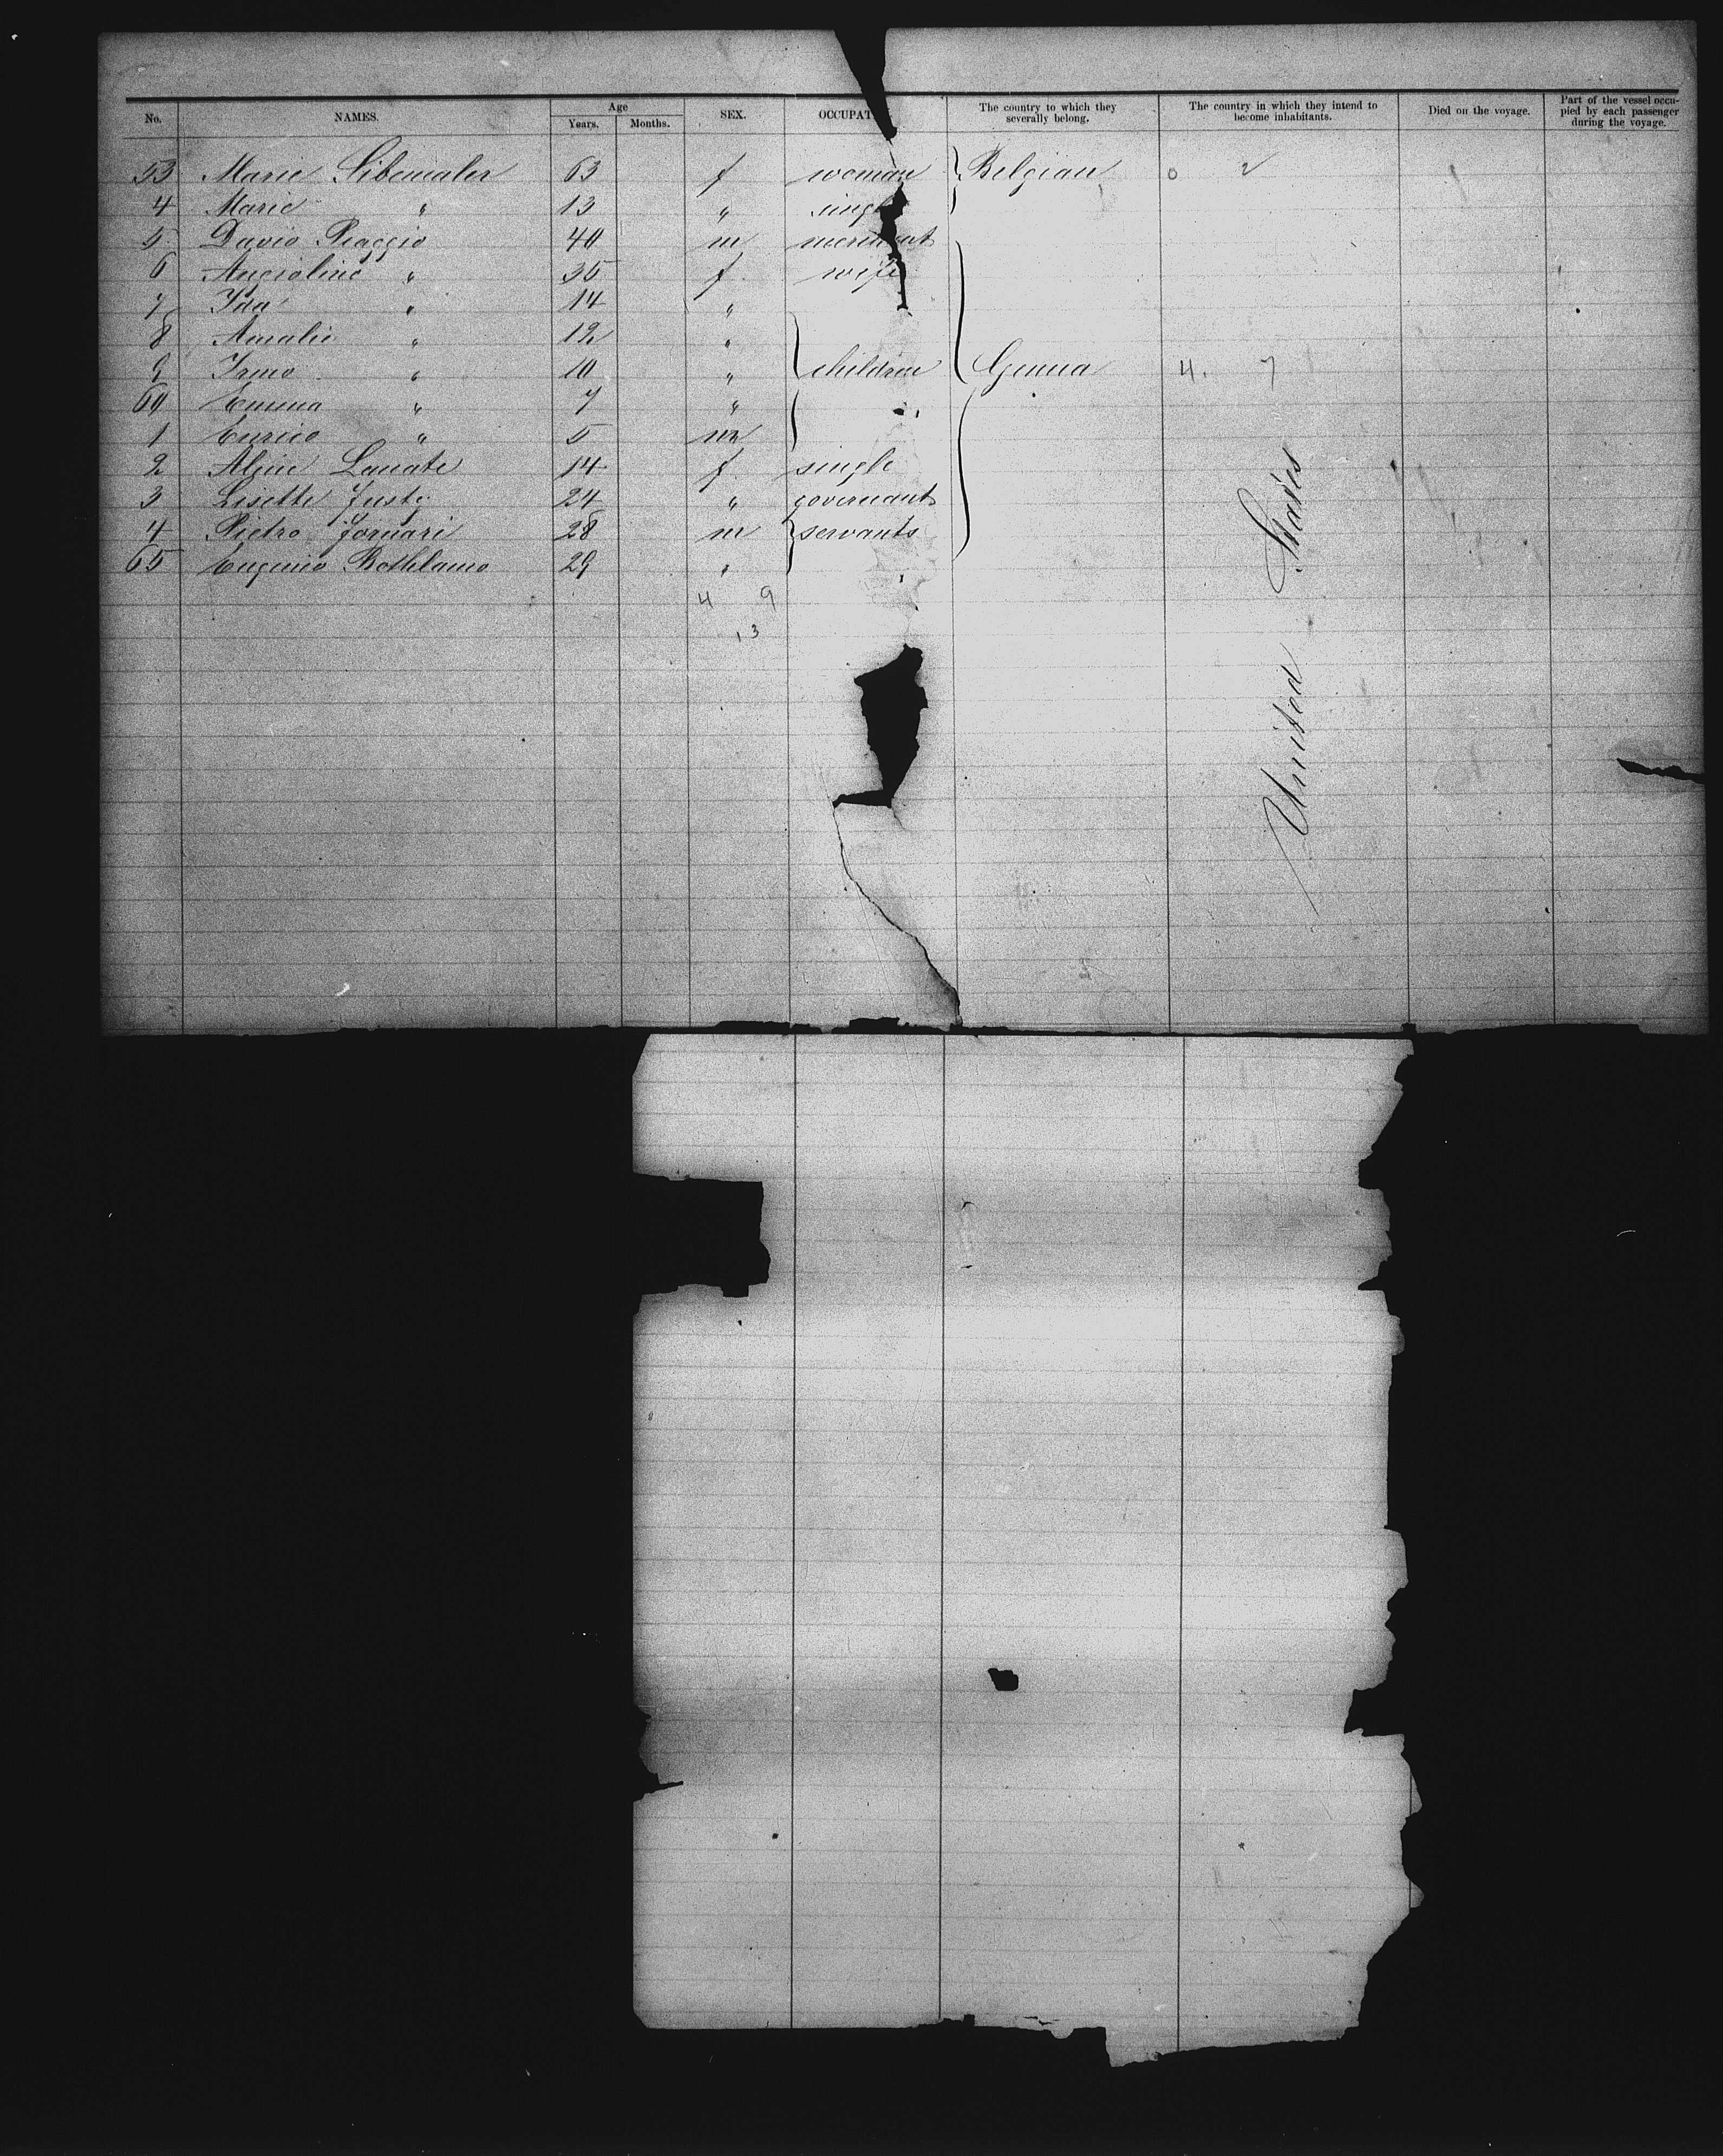 No. NAMES. Age Years. Months. SEX. OCCUPAT The country to which they severally belong. The country in which they intend to become inhabitants. Died on the voyage. Part of the vessel occupied by each passenger during the voyage.
53 Marie 63 f woman Belgian 0 2
4 Marie " 13 " singl
5 David Piaggio 40 m merchant
6 Angioline " 35 f wife
7 Ida " 14 "
8 Amalie " 12 "
9 Irma " 10 " children Genua 4. 7
60 Emma " 7 "
1 Enrico " 5 m
2 Aline Lanate 14 f single
3 Lisette Juste 24 " governant
4 Pietro Fornari 28 m servants
65 Eugenio 29 "
4 9
13
United States